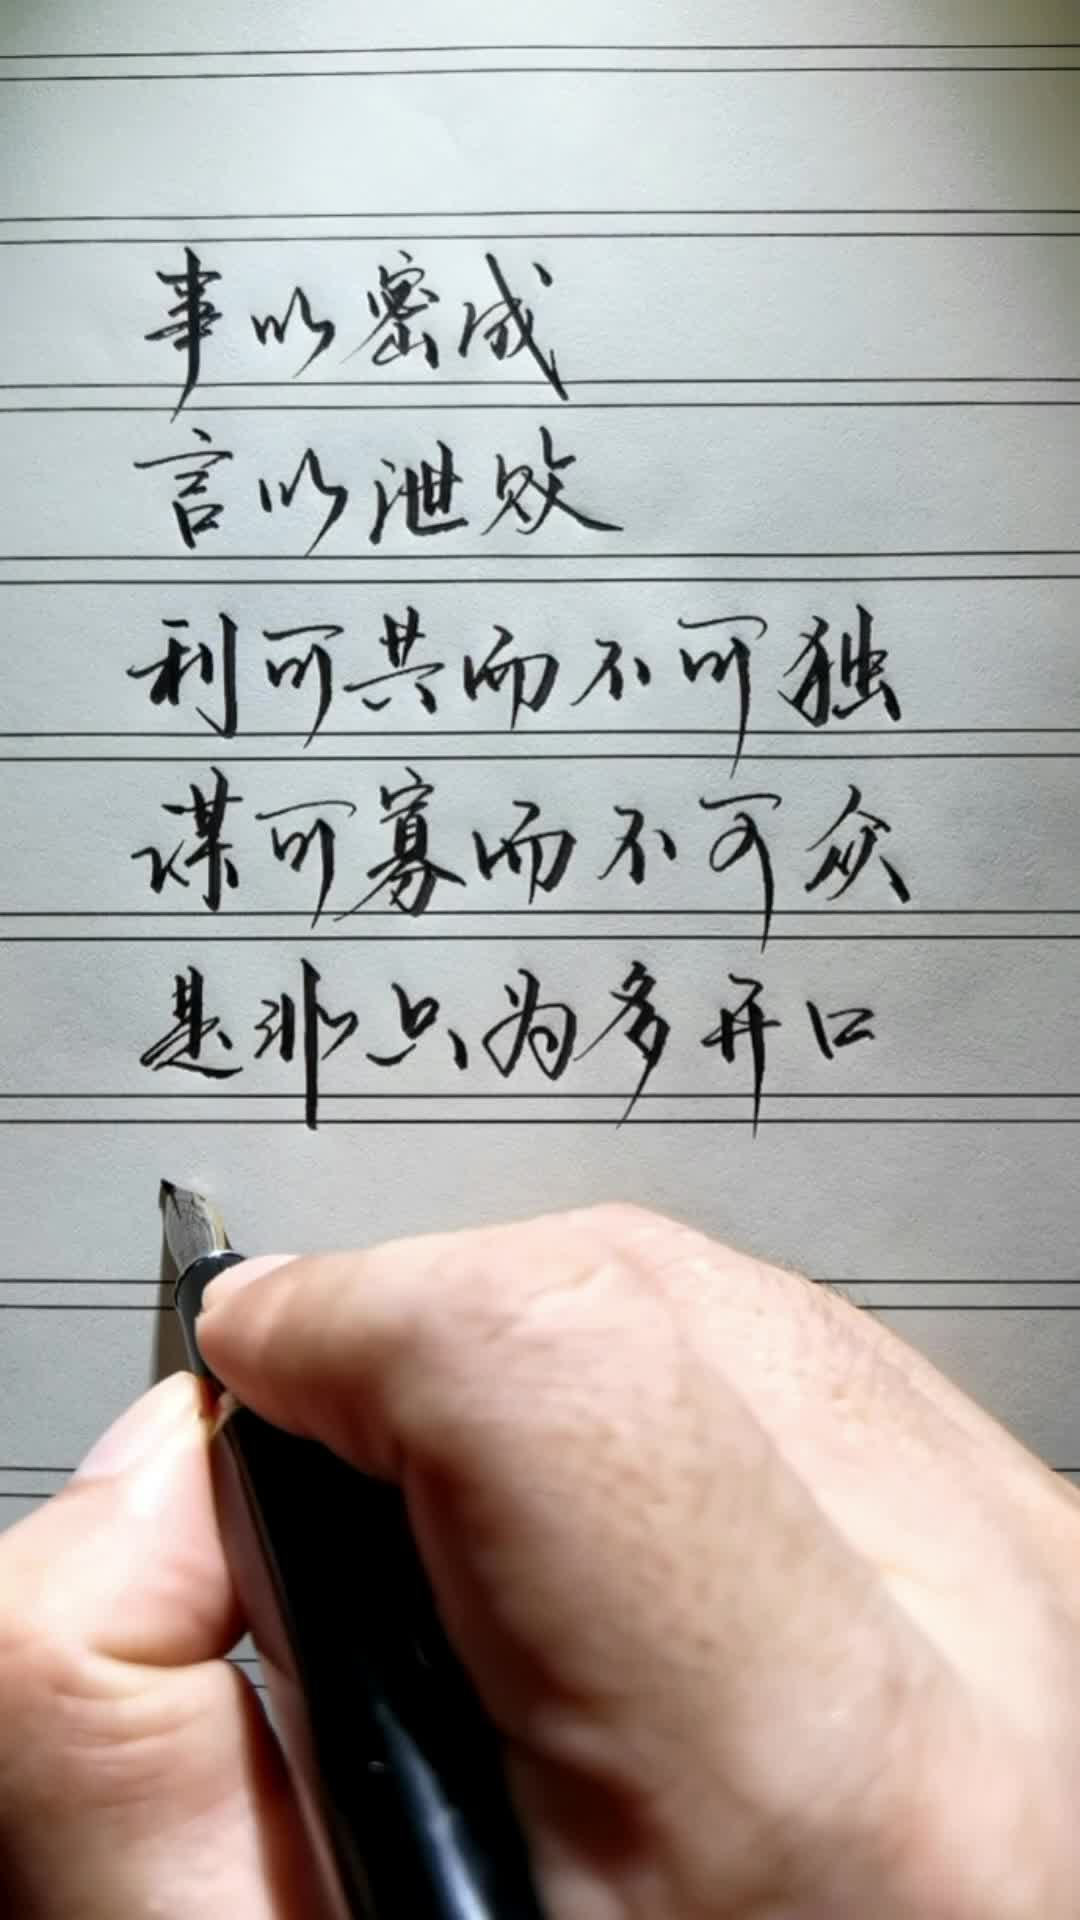 事以密成
言以泄败
利可共而不可独
谋可寡而不可众
是非只为多开口